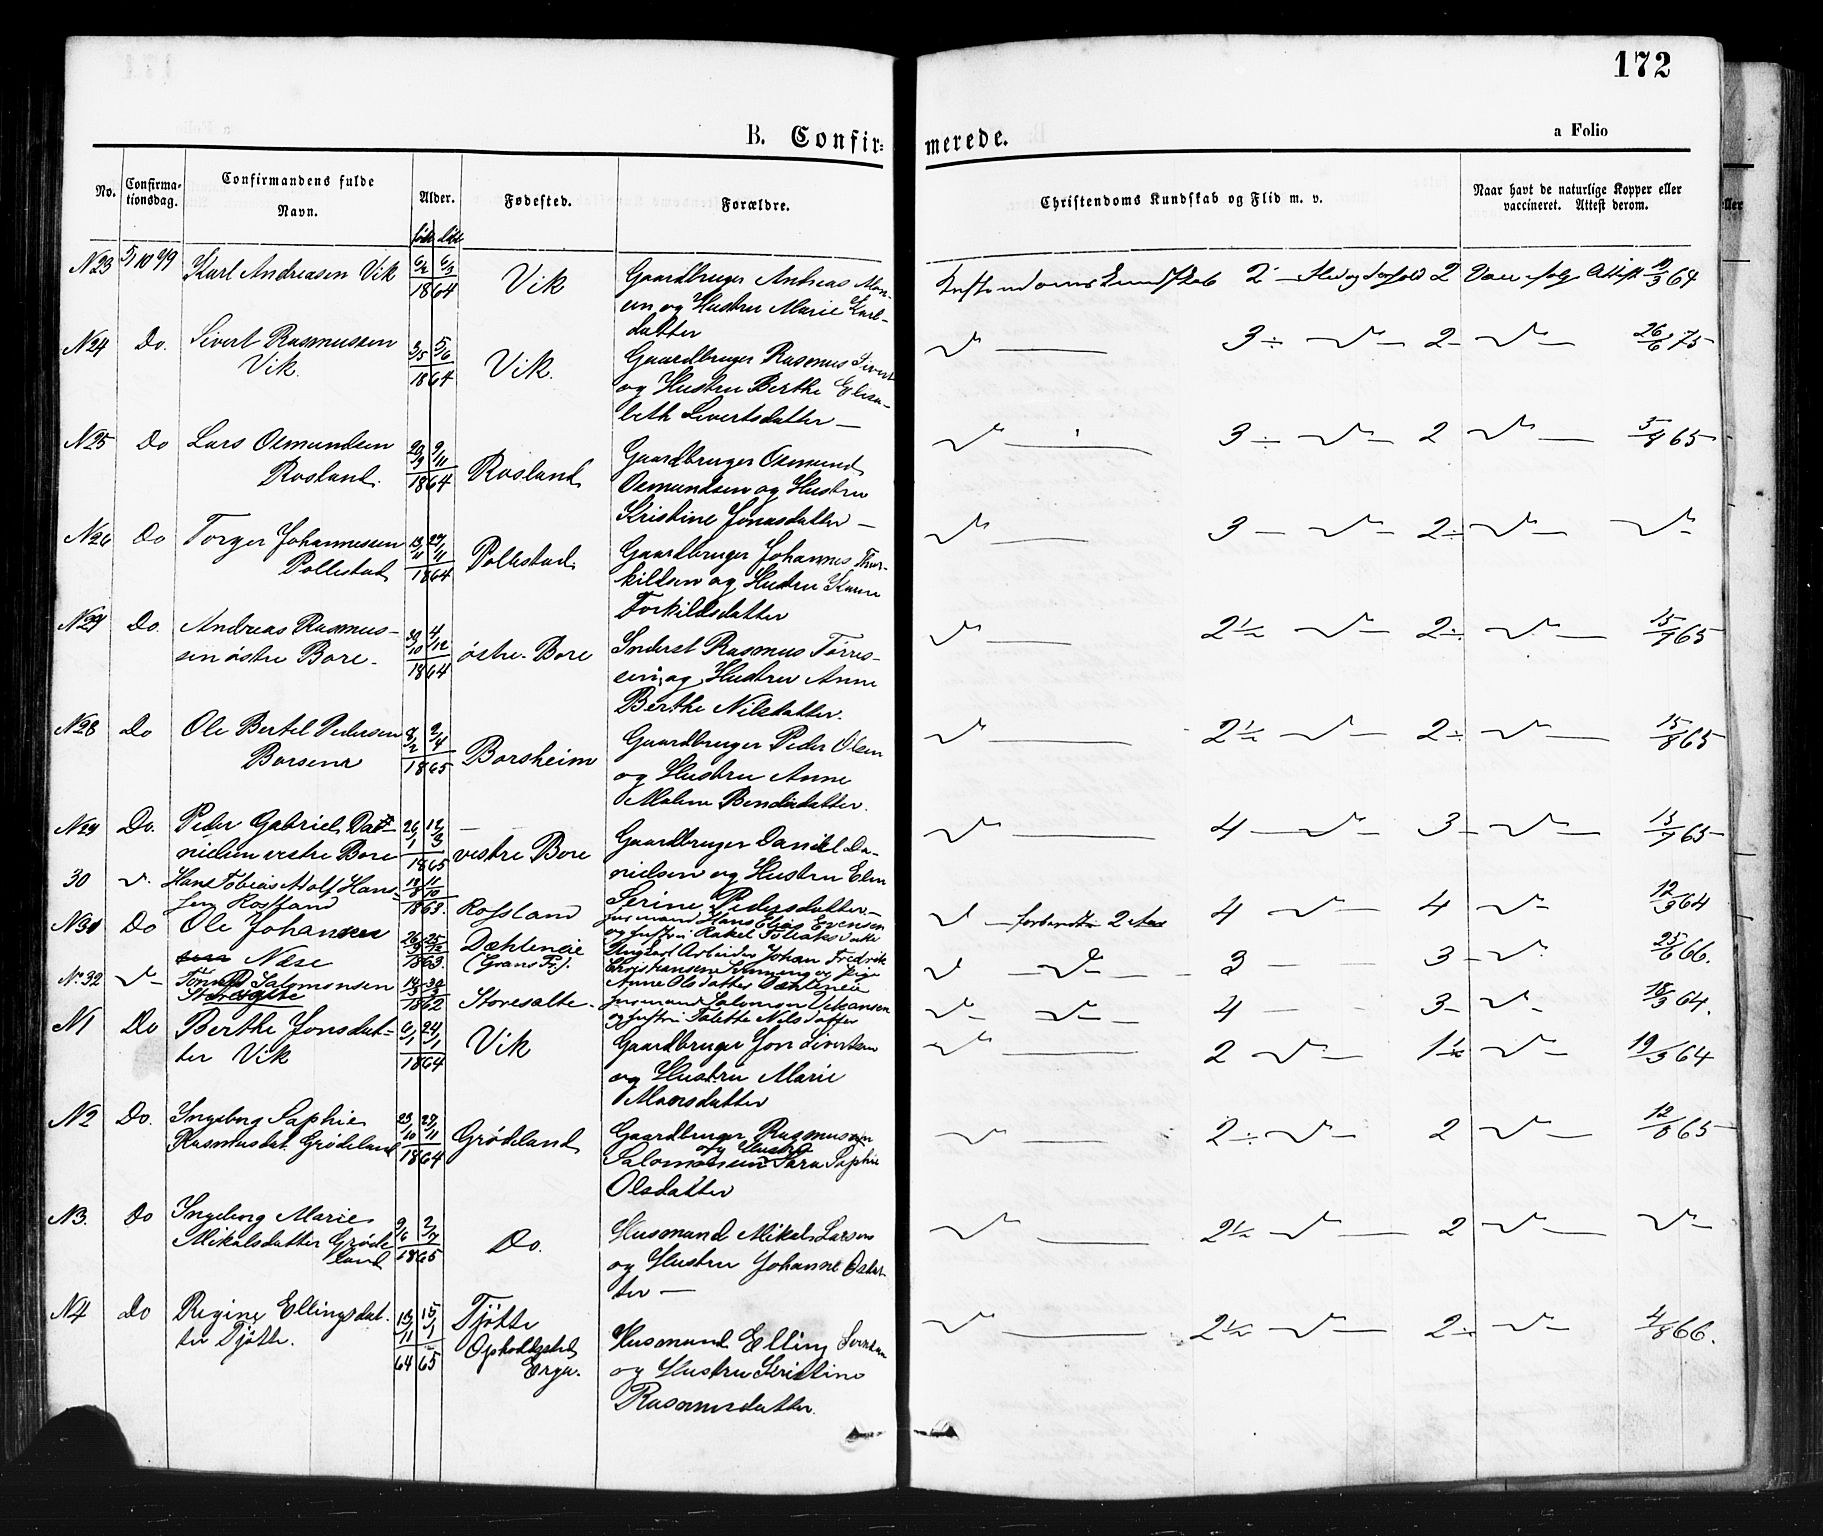 172
B. Confir=
merede.
a Folio
No.
Confirma-
tionsdag.
Confirmandens fulde
Navn.
Alder.
Fødested.
Forældre.
Christendoms Kundskab og Flid m. v.
Naar havt de naturlige Kopper eller
vaccineret. Attest derom.
født døbt
N23 5/10 79 Karl Andreasen Vik 6/2 6/3 1864 Vik Gaardbruger Andreas Mon-
sen og Hustru Marie Karl-
datter
Kristendomskundskab 2 Flid og Forhold 2 Attest 19/3 64
N24 Do. Sivert Rasmussen
Vik.
3/5 5/6 1864 Vik. Gaardbruger Rasmus Sivert
og Hustru Berthe Elisa-
beth Sivertsdatter —
3 ÷ 2 - 26/6 75
N25 Do Lars Osmundsen
Rosland.
20/9 9/11 1864 Rosland Gaardbruger Osmund
Osmundsen og Hustru
Kristine Jonasdatter —
3 ÷ 2 3/8 65
N26 Do Torger Johannessen
Pollestad
13/11 27/11 1864 Pollestad Gaardbruger Johannes Thor-
kildsen og Hustru
Torkildsdatter
3 — 2 ÷
N27 Do. Andreas Rasmus-
sen østre Bore.
30/10 4/12 1864 østre Bore Inderst Rasmus Tørres-
sen og Hustru Anne
Berthe Nilsdatter.
2 1/2 2 ÷ 15/7 65
N28 Do Ole Bertel Pedersen
8/2 2/4 1865 Borsheim Gaardbruger Peder Olsen
og Hustru Anne
Malene Bendixdatter.
2 1/2 2 ÷ 15/8 65
N29 Do. Peder Gabriel Da-
nielsen vestre Bore
26/1 12/3 1865 vestre Bore Gaardbruger Daniel Da-
nielsen og Hustru Elen
Serine Pedersdatter —
4 3 - 13/7 65
30 Hans Tobias Adolf Han-
sen Rossland
18/8 11/10 1863 Rossland Husmand Hans Elias Evensen
og Hustru Rakel
4 4 12/9 64
N31 Do Ole Johansen
Næse
1863. Dæhleneie
(Grans Pr.)
Arbeider Johan Fredrik
Christiansen og Pige
Anne Olsdatter Dæhleneie
3 3 - 25/6 66.
No. 32 Tønnes Salomonsen
Storesalte
1862 Storesalte. Husmand Salomon
og Hustru Talette Nilsdatter
4 3 - 18/9 64.
N1 Do Berthe Jonsdat-
ter Vik
6/1 24/1 1864 Vik Gaardbruger Jon Sivertsen
og Hustru Marie
Monsdatter
2 1 1/2 19/9 64
N2 Do. Ingeborg Saphie
Rasmusdat. Grødeland
23/10 27/11 1864 Grødeland Gaardbruger Rasmussen
og Hustru
Salomonsen Sara Saphie
Olsdatter
2 ÷ 2 12/8 65
N3. Do Ingeborg Marie
Mikalsdatter Grøde
land
9/6 2/7 1865 Do. Husmand Mikal Larsen
og Hustru Johanne
ter —
2 1/2 2
N4 Do Regine Ellingsdat-
ter Tjøtte.
13/11 64 15/1 65 Tjøtte
Opholdssted
Erga.
Husmand Elling Sivertsen
og Hustru Kristine
Rasmusdatter.
2 1/2 2 ÷ 4/8 66.